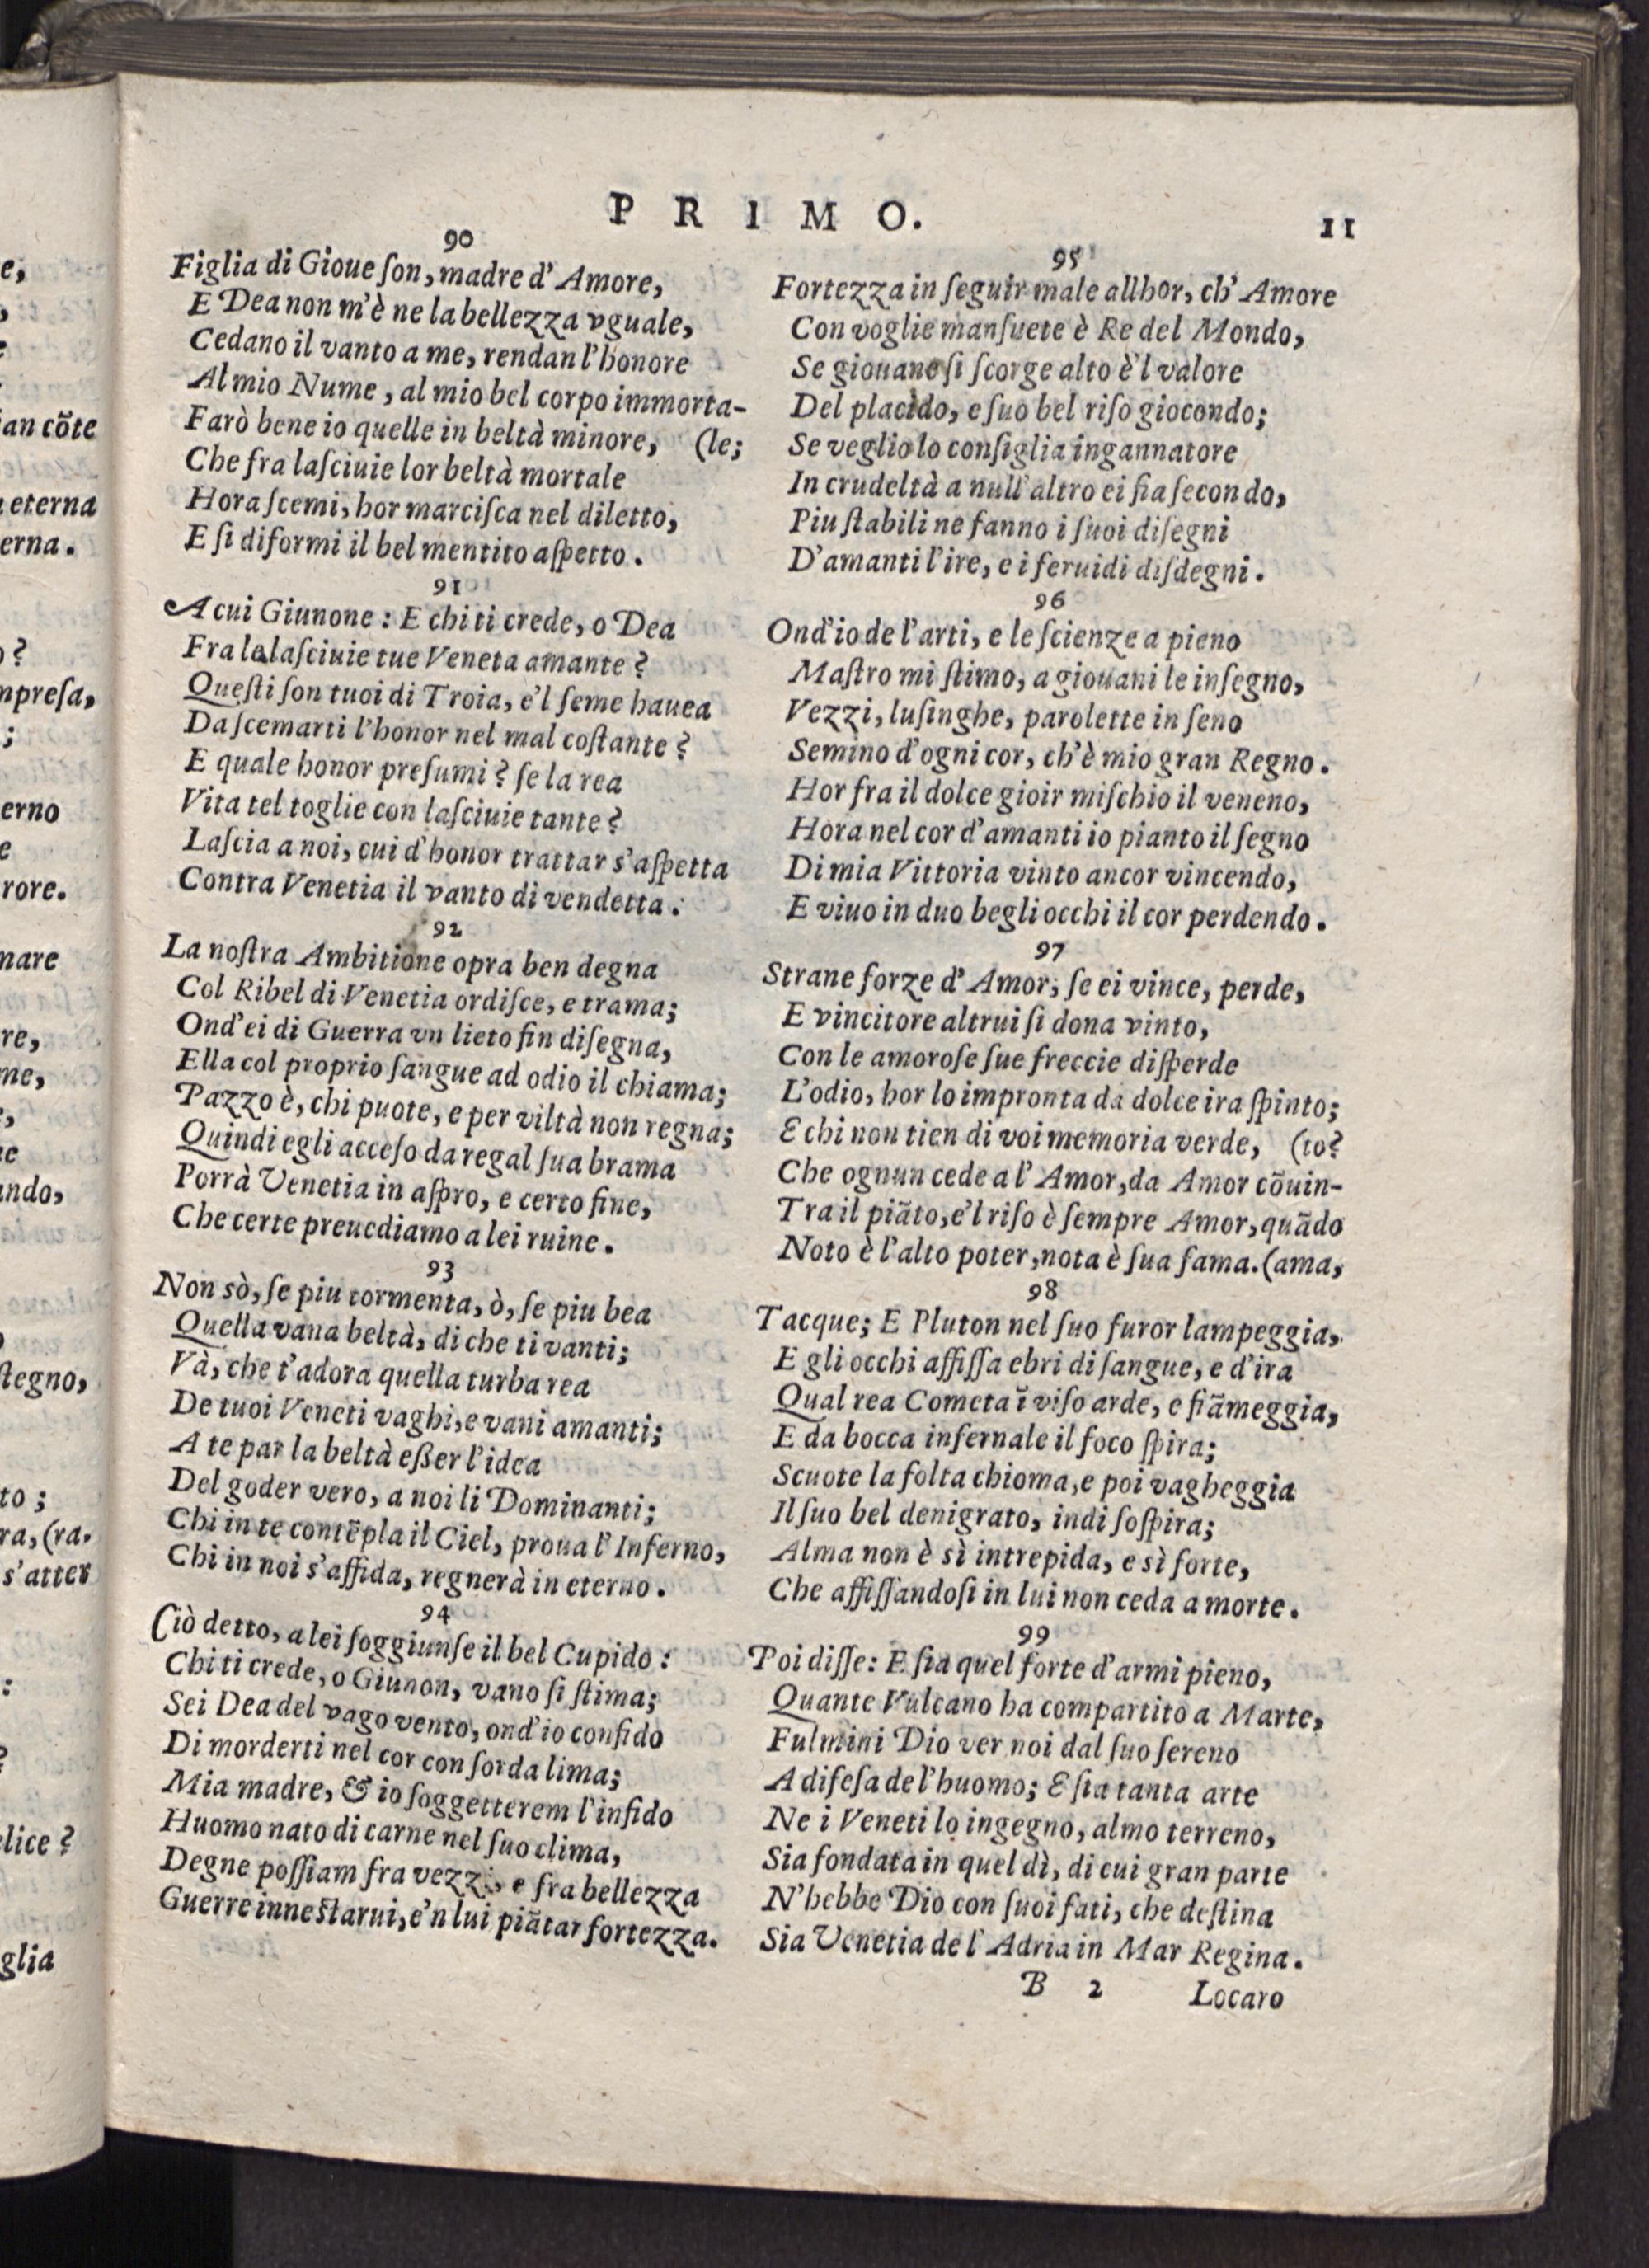 PRIMO.
11
90
Figlia di Gioue ſon, madre d'Amore,
E Dea non m'è ne la bellezza vguale,
Cedano il vanto a me, rendan l'honore
Al mio Nume, al mio bel corpo immorta-
Farò bene io quelle in beltà minore, (le;
Che fra laſciuie lor beltà mortale
Hora ſcemi, hor marciſca nel diletto,
E ſi diformi il bel mentito aſpetto.
91
A cui Giunone: E chi ti crede, o Dea
Fra le laſciuie tue Veneta amante?
Queſti ſon tuoi di Troia, e'l ſeme hauea
Da ſcemarti l'honor nel mal coſtante?
E quale honor preſumi? ſe la rea
Vita tel toglie con laſciuie tante?
Laſcia a noi, cui d'honor trattar s'aſpetta
Contra Venetia il vanto di vendetta.
92
La noſtra Ambitione opra ben degna
Col Ribel di Venetia ordiſce, e trama;
Ond'ei di Guerra vn lieto fin diſegna,
Ella col proprio ſangue ad odio il chiama;
Pazzo è, chi puote, e per viltà non regna;
Quindi egli acceſo da regal ſua brama
Porrà Venetia in aſpro, e certo fine,
Che certe preuediamo a lei ruine.
93
Non sò, ſe piu tormenta, ò, ſe piu bea
Quella vana beltà, di che ti vanti;
Và, che t'adora quella turba rea
De tuoi Veneti vaghi, e vani amanti;
A te par la beltà eßer l'idea
Del goder vero, a noi li Dominanti;
Chi in te contẽpla il Ciel, proua l'Inferno,
Chi in noi s'affida, regnerà in eterno.
94
Ciò detto, a lei ſoggiunſe il bel Cupido:
Chi ti crede, o Giunon, vano ſi ſtima;
Sei Dea del vago vento, ond'io confido
Di morderti nel cor con ſorda lima;
Mia madre, & io ſoggetterem l'infido
Huomo nato di carne nel ſuo clima,
Degne poſſiam fra vezzi, e fra bellezza
Guerre inneſtarui, e'n lui piãtar fortezza.
95
Fortezza in ſeguir male allhor, ch'Amore
Con voglie manſuete è Re del Mondo,
Se giouane ſi ſcorge alto è'l valore
Del placido, e ſuo bel riſo giocondo;
Se veglio lo conſiglia ingannatore
In crudeltà a null'altro ei ſia ſecondo,
Piu ſtabili ne fanno i ſuoi diſegni
D'amanti l'ire, e i feruidi diſdegni.
96
Ond'io de l'arti, e le ſcienze a pieno
Maſtro mi ſtimo, a giouani le inſegno,
Vezzi, luſinghe, parolette in ſeno
Semino d'ogni cor, ch'è mio gran Regno.
Hor fra il dolce gioir miſchio il veneno,
Hora nel cor d'amanti io pianto il ſegno
Di mia Vittoria vinto ancor vincendo,
E viuo in duo begli occhi il cor perdendo.
97
Strane forze d'Amor, ſe ei vince, perde,
E vincitore altrui ſi dona vinto,
Con le amoroſe ſue freccie diſperde
L'odio, hor lo impronta da dolce ira ſpinto;
E chi non tien di voi memoria verde, (to?
Che ognun cede a l'Amor, da Amor cõuin-
Tra il piãto, e'l riſo è ſempre Amor, quãdo
Noto è l'alto poter, nota è ſua fama. (ama,
98
Tacque; E Pluton nel ſuo furor lampeggia,
E gli occhi affiſſa ebri di ſangue, e d'ira
Qual rea Cometa ĩ viſo arde, e fiãmeggia,
E da bocca infernale il foco ſpira;
Scuote la folta chioma, e poi vagheggia
Il ſuo bel denigrato, indi ſoſpira;
Alma non è sì intrepida, e sì forte,
Che affiſſandoſi in lui non ceda a morte.
99
Poi diſſe: E ſia quel forte d'armi pieno,
Quante Vulcano ha compartito a Marte,
Fulmini Dio ver noi dal ſuo ſereno
A difeſa de l'huomo; E ſia tanta arte
Ne i Veneti lo ingegno, almo terreno,
Sia fondata in quel dì, di cui gran parte
N'hebbe Dio con ſuoi fati, che deſtina
Sia Venetia de l'Adria in Mar Regina.
B 2 Locaro